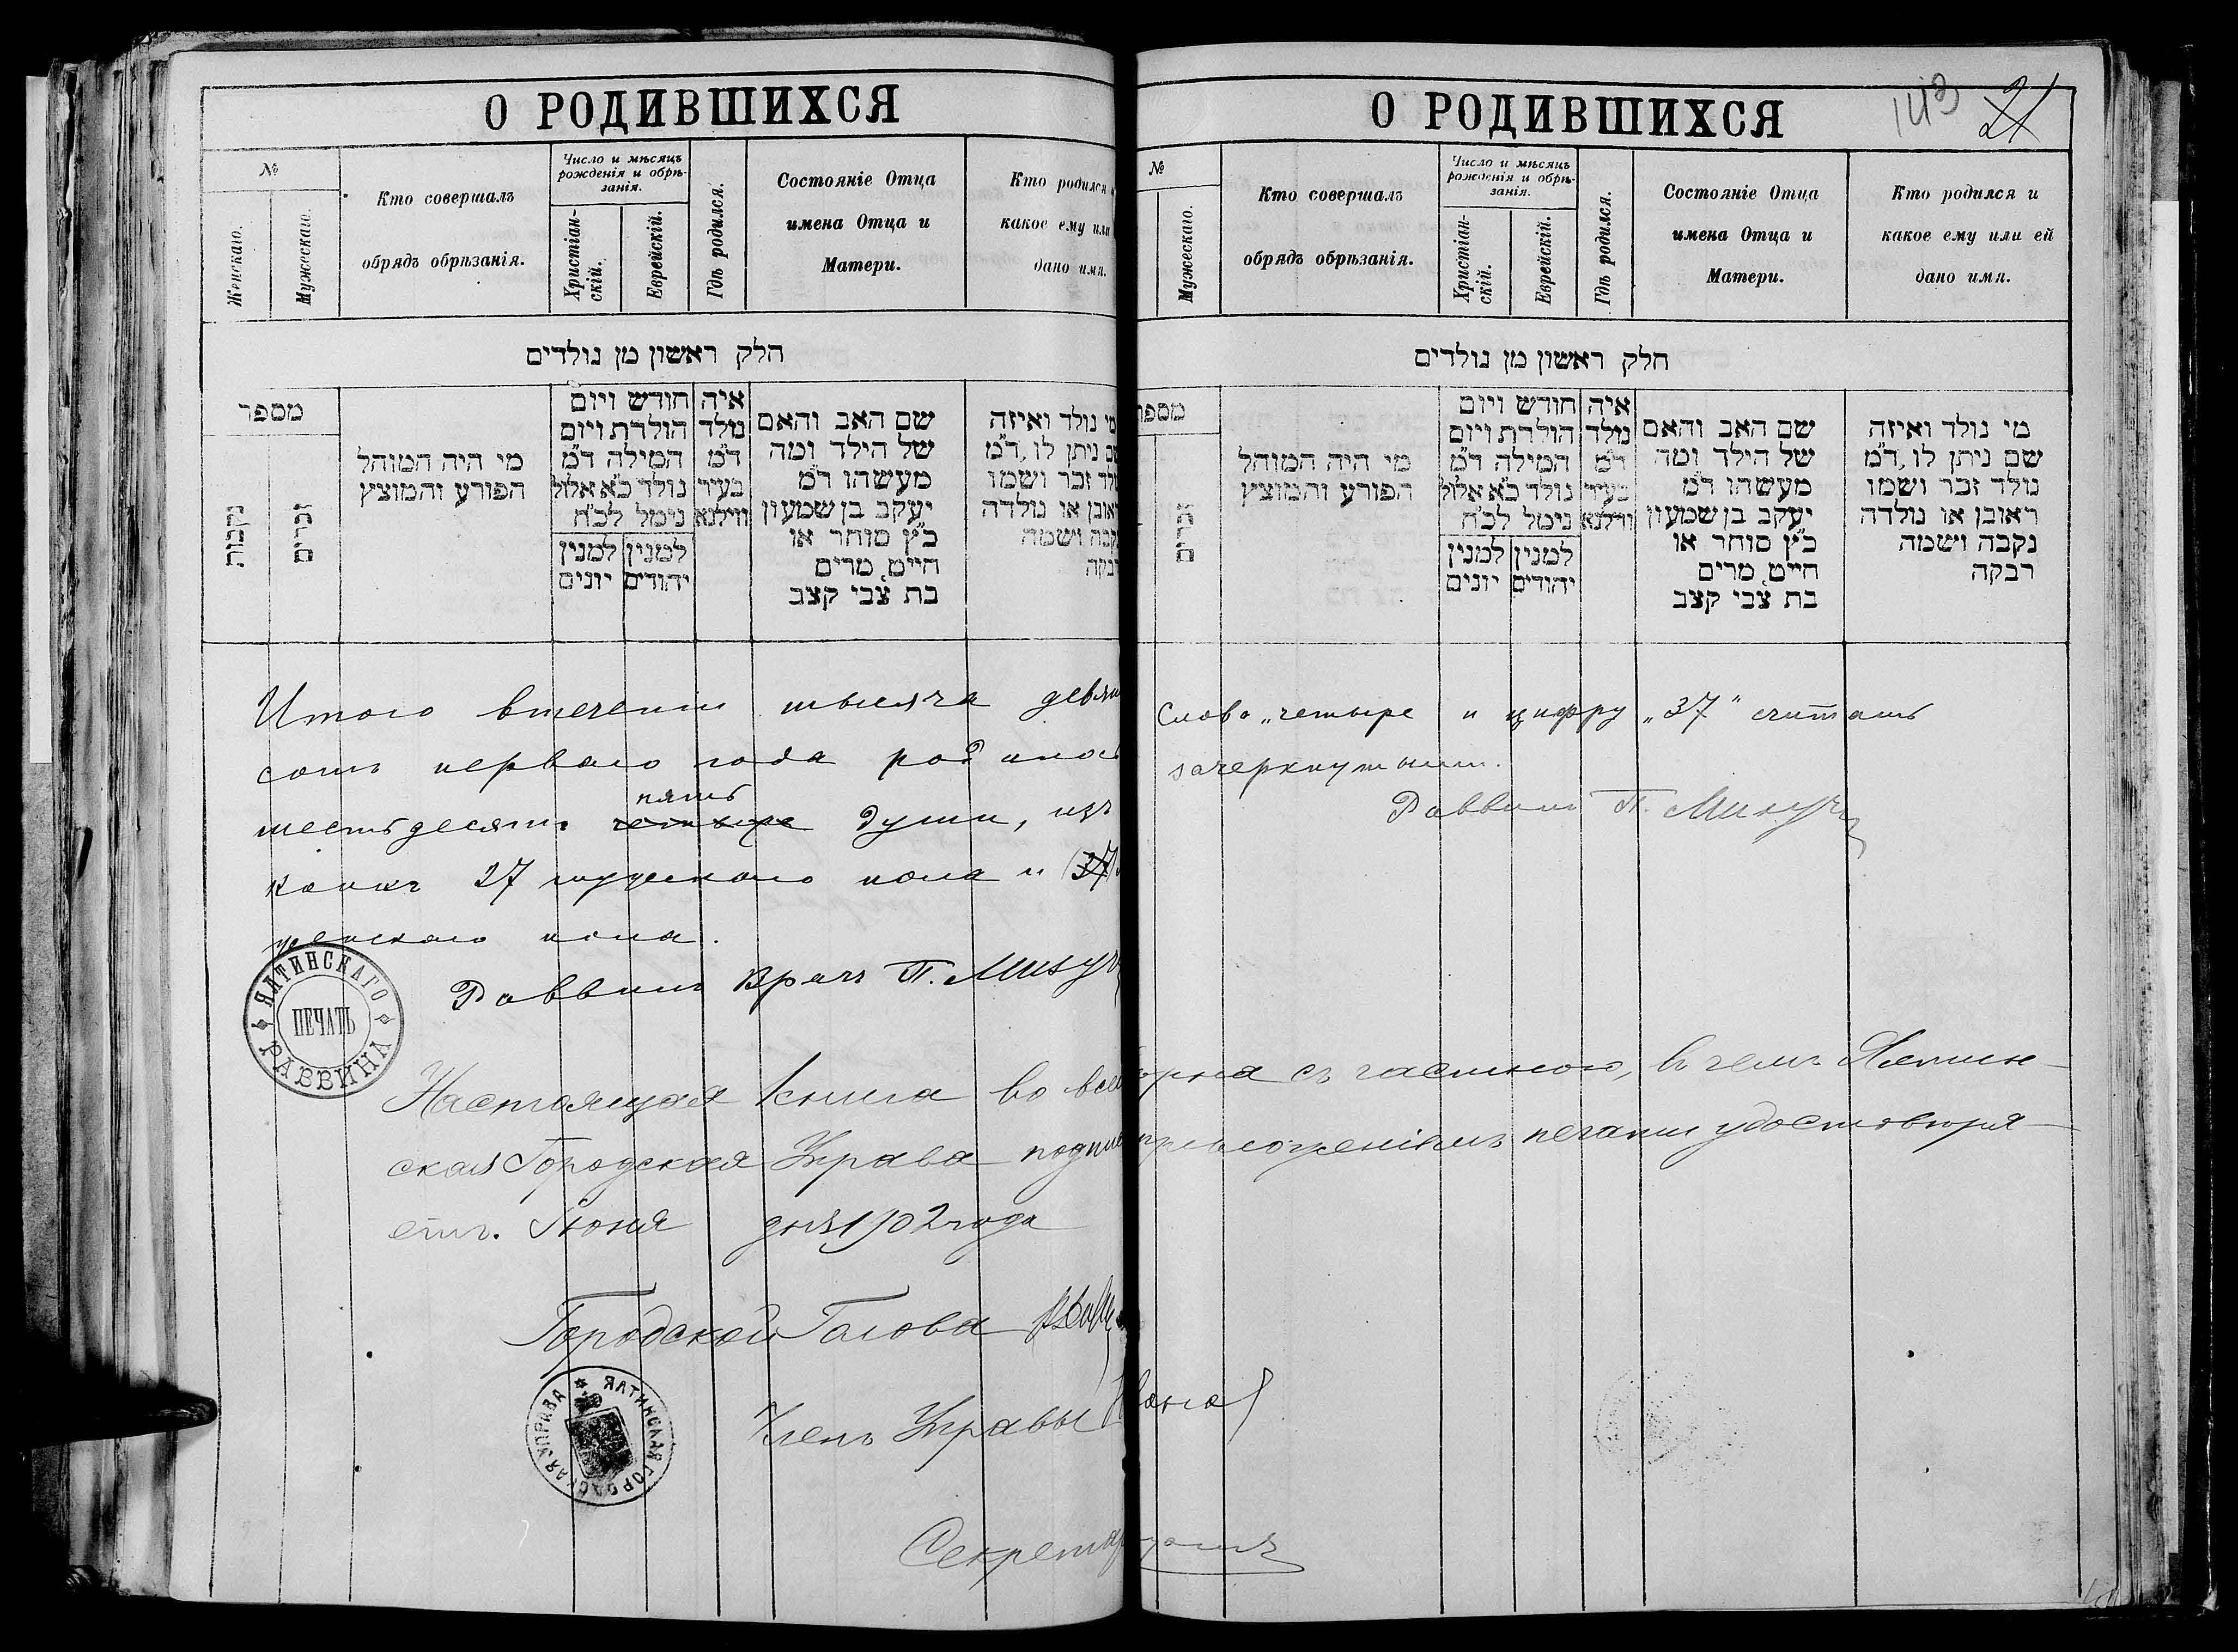 О РОДИВШИХСЯ
№
Женскаго.
Мужескаго.
Кто совершалъ
обрядъ обрѣзанія.
Число и мѣсяцъ
рожденія и обрѣ-
занія.
Христіан-
скій.
Еврейскій.
Гдѣ родился.
Состояніе Отца
имена Отца и
Матери.
Кто родился и
какое ему или
дано имя.
חלק ראשון מן נולדים
מספר
נקבות
זכרים
מי היה המוהל
הפורע והמוצץ
חודש ויום
הולדת ויום
המילה ד״מ
נולד כ״א אלול
נימל לכ״ח
למנין יהודים
למנין יונים
איה
נולד
ד״מ
בעיר
ווילנא
שם האב והאם
של הילד ומה
מעשהו ד״מ
יעקב בן שמעון
כ״ץ סוחר או
חייט, מרים
בת צבי קצב
מי נולד ואיזה
שם ניתן לו, ד״מ
נולד זכר ושמו
ראובן או נולדה
נקבה ושמה
רבקה
Итого втеченіи тысяча девят
сотъ перваго года родилось
шестьдесятъ четыре пять души, изъ
коихъ 27 мужескаго пола и (37)
женскаго пола.
Раввинъ Врачъ П.
ЯЛТИНСКАГО РАВВИНА
ПЕЧАТЬ
Настоящая книга во все
ская Городская Управа подпи
етъ. Іюня дня 1902 года
Городской Голова
ЯЛТИНСКАЯ ГОРОДСКАЯ УПРАВА
Членъ Управы
Секретарь
О РОДИВШИХСЯ
143 21
№
Мужескаго.
Кто совершалъ
обрядъ обрѣзанія.
Число и мѣсяцъ
рожденія и обрѣ-
занія.
Христіан-
скій.
Еврейскій.
Гдѣ родился.
Состояніе Отца
имена Отца и
Матери.
Кто родился и
какое ему или ей
дано имя.
חלק ראשון מן נולדים
מספר
זכרים
מי היה המוהל
הפורע והמוצץ
חודש ויום
הולדת ויום
המילה ד״מ
נולד כ״א אלול
נימל לכ״ח
למנין יהודים
למנין יונים
איה
נולד
ד״מ
בעיר
ווילנא
שם האב והאם
של הילד ומה
מעשהו ד״מ
יעקב בן שמעון
כ״ץ סוחר או
חייט, מרים
בת צבי קצב
מי נולד ואיזה
שם ניתן לו, ד״מ
נולד זכר ושמו
ראובן או נולדה
נקבה ושמה
רבקה
Слово „четыре и цифру „37" считать
зачеркнутыми.
Раввинъ П.
рна съ частною, въ чемъ Ялтин-
приложеніемъ печати удостовѣря-